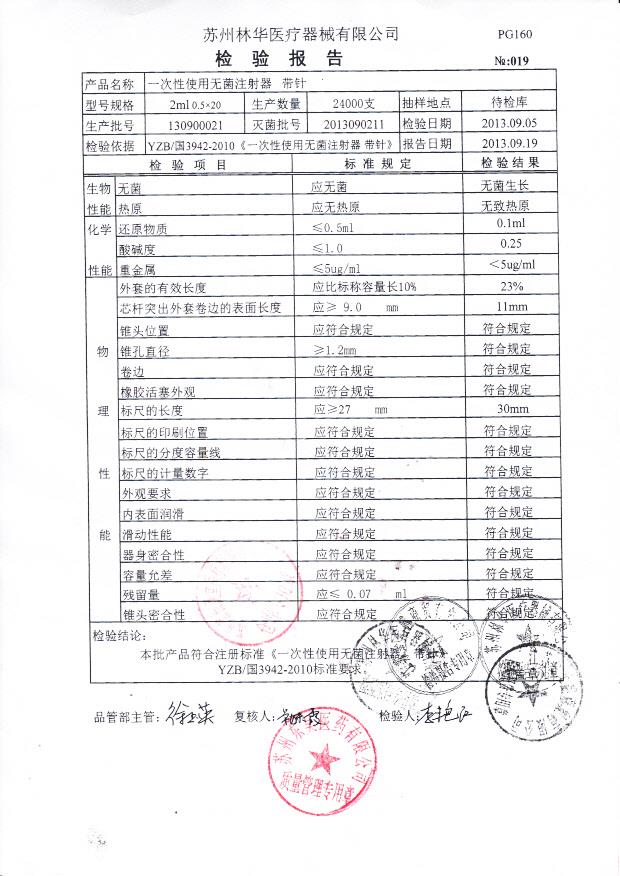 苏州林华医疗器械有限公司 PG160
检验报告 №:019
产品名称 一次性使用无菌注射器 带针
型号规格 2ml 0.5×20 生产数量 24000支 抽样地点 待检库
生产批号 130900021 灭菌批号 2013090211 检验日期 2013.09.05
检验依据 YZB/国3942-2010《一次性使用无菌注射器 带针》 报告日期 2013.09.19
检验项目 标准规定 检验结果
生物 无菌 应无菌 无菌生长
性能 热原 应无热原 无致热原
化学 还原物质 ≤0.5ml 0.1ml
酸碱度 ≤1.0 0.25
性能 重金属 ≤5ug/ml <5ug/ml
外套的有效长度 应比标称容量长10% 23%
芯杆突出外套卷边的表面长度 应≥ 9.0 mm 11mm
锥头位置 应符合规定 符合规定
物 锥孔直径 ≥1.2mm 符合规定
卷边 应符合规定 符合规定
橡胶活塞外观 应符合规定 符合规定
理 标尺的长度 应≥27 mm 30mm
标尺的印刷位置 应符合规定 符合规定
标尺的分度容量线 应符合规定 符合规定
性 标尺的计量数字 应符合规定 符合规定
外观要求 应符合规定 符合规定
内表面润滑 应符合规定 符合规定
能 滑动性能 应符合规定 符合规定
器身密合性 应符合规定 符合规定
容量允差 应符合规定 符合规定
残留量 应≤ 0.07 ml 符合规定
锥头密合性 应符合规定 符合规定
检验结论:
本批产品符合注册标准《一次性使用无菌注射器 带针》
YZB/国3942-2010标准要求
品管部主管: 复核人: 检验人:
质量管理专用章